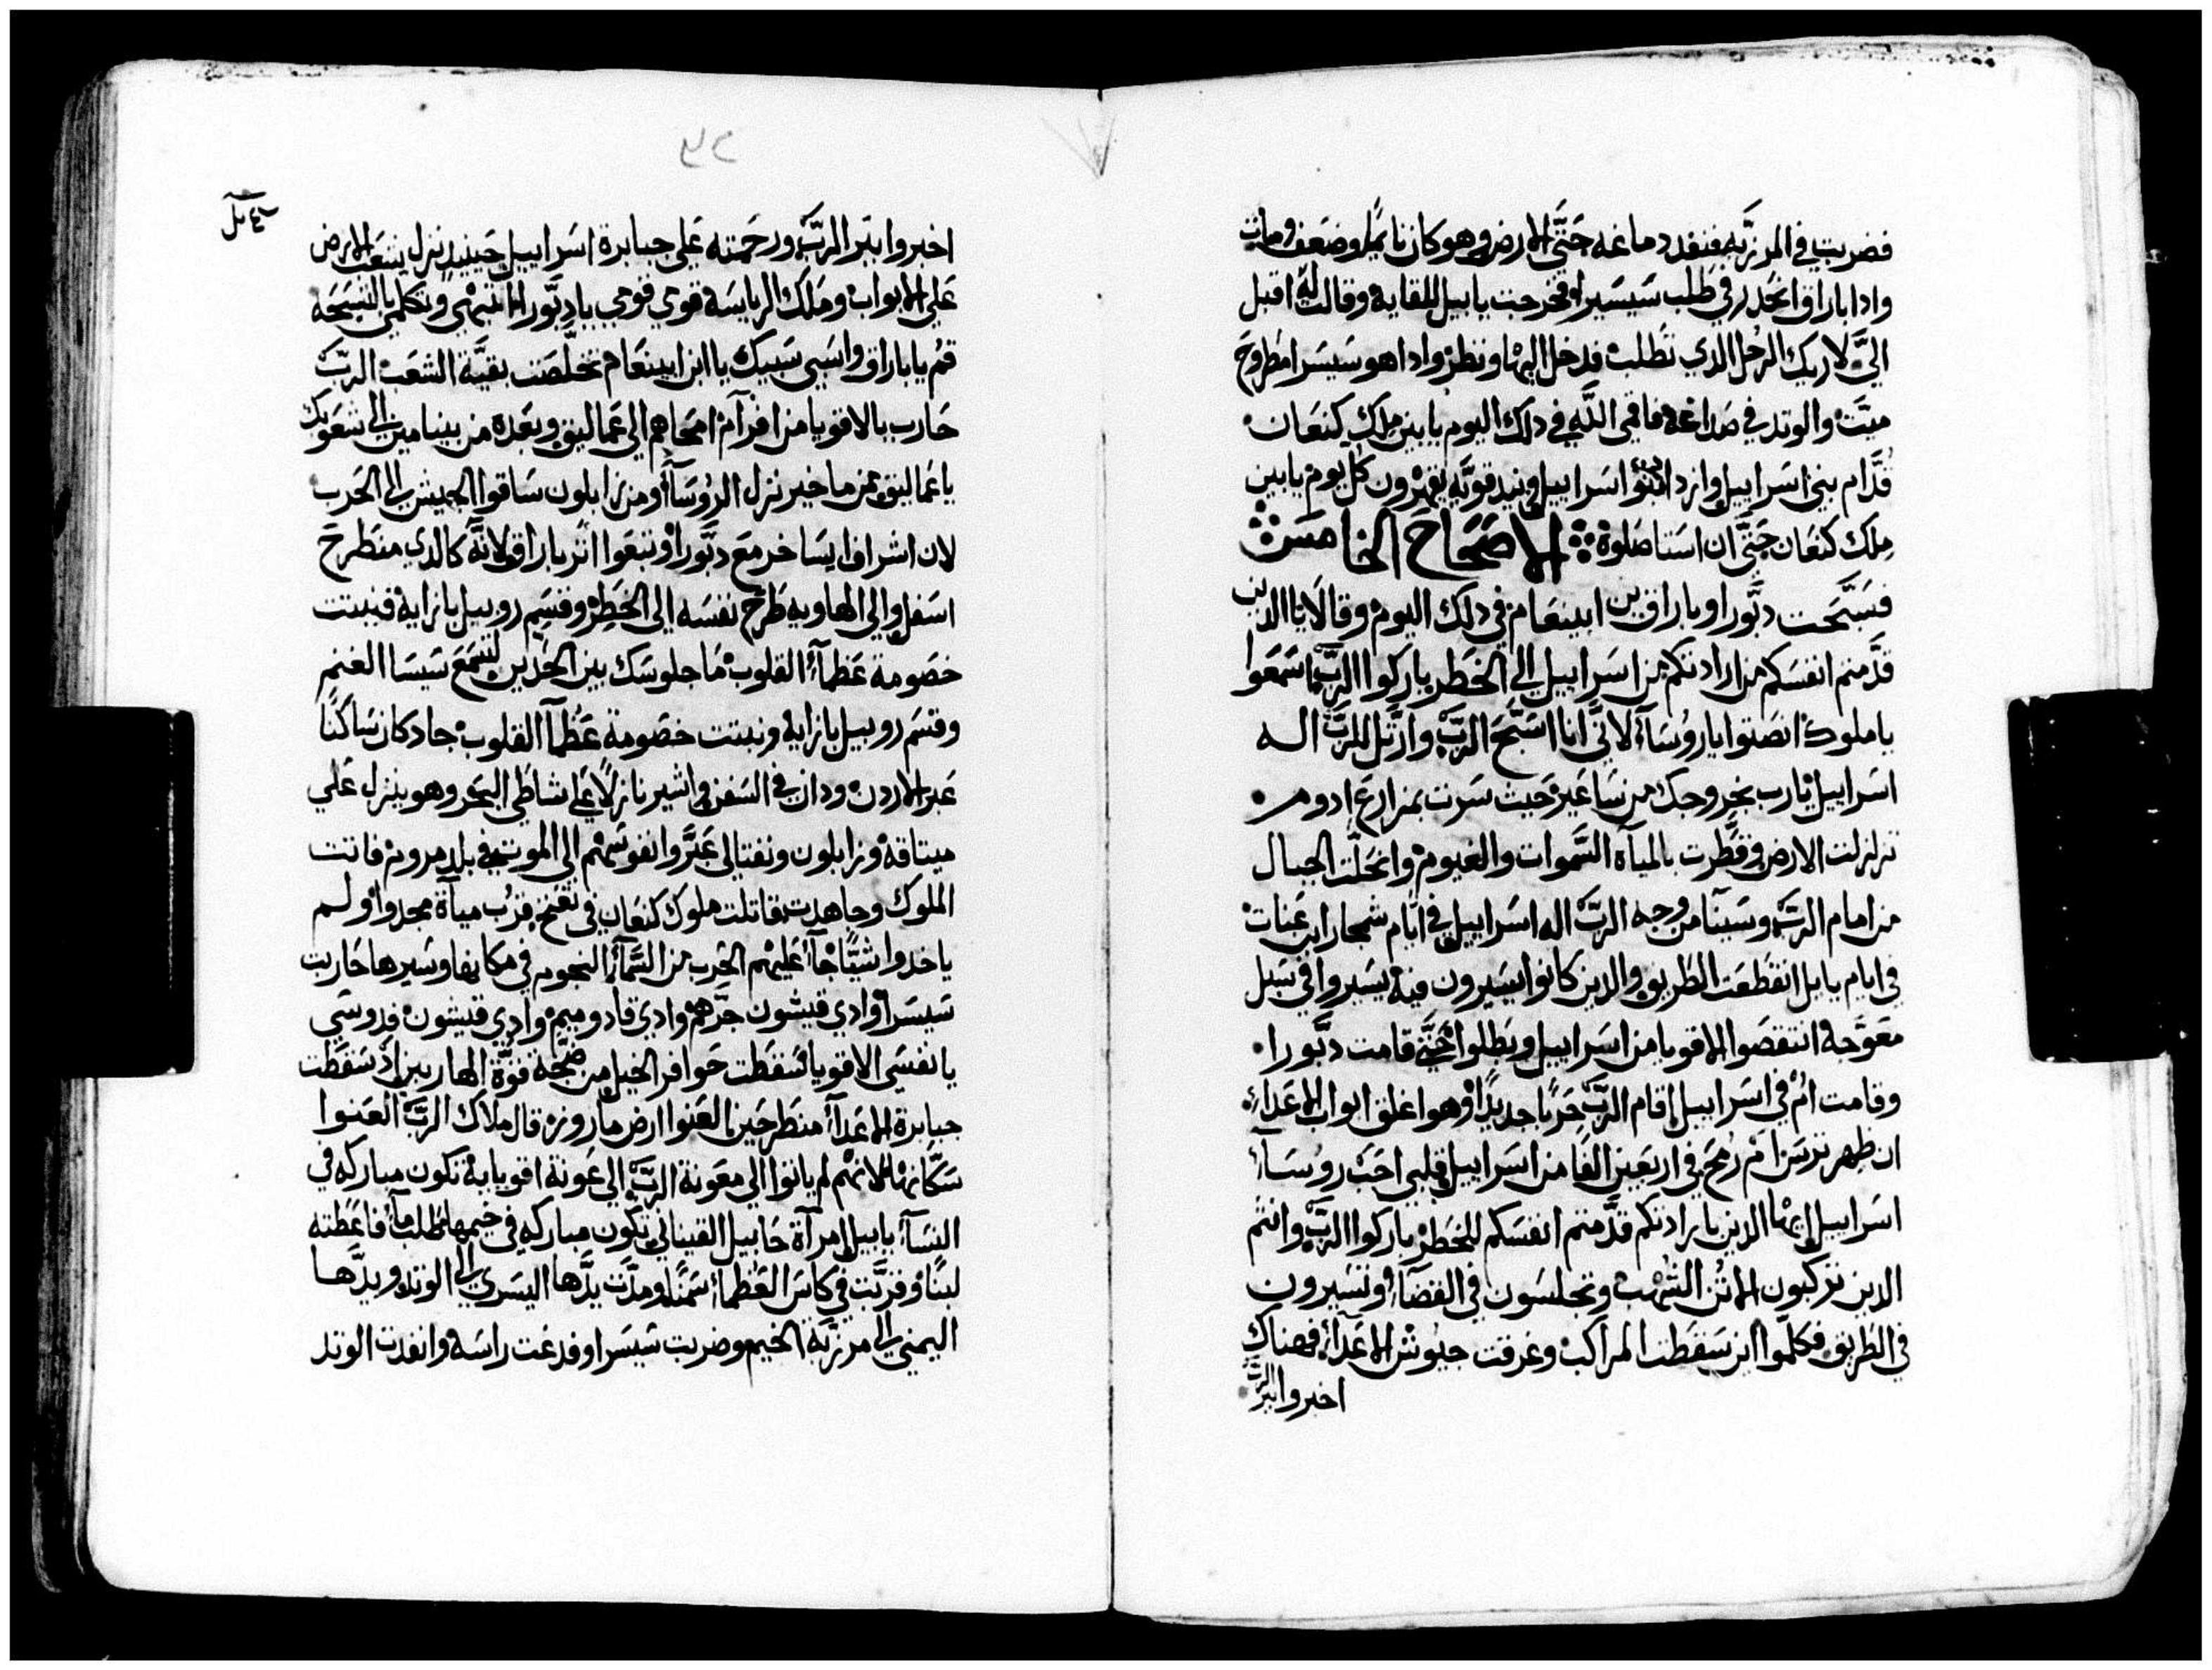 فضربت في المرزبه فنفد دماغه حتَّى الارض وهو كان نايمًا وضعف ومات
وادا باراق انحدر في طلب سَيسَيرا فخرجت ياييل للقايه وقالت له اقبل
اليَّ لاريك الرجل الدي تطلبه فدخل اليها ونظر وادا هو سيسرا مطروح
ميتَ والوتد في صداغه فاقمى اللَّه في دلك اليوم يابين ملك كنعان
قدَّام بني اسراييل وازدادُوا بنوا اسراييل ونيد قويَّه يقهرون كل يوم يابين
ملك كنعان حتَّى ان استاصلوة الاصَحَاحَ الخامسَ
فسَبَّحَت دبَّورا وباراق بن ابينعام في دلك اليوم وقالا يا الدين
قدَّمتم انفسَكم من ارادتكم من اسراييل الى الخطر باركوا الربَّ اسمعوا
يا ملوك انصتوا يا روُسَاء لانَّي انا اسَبَّحَ الربَّ وارتَّل للربَّ اله
اسراييل يارب بخروجك من ساعَير حيث سرت بمزارع ادوم
تزلزلت الارض وقطَّرت بالمياه السَّموات والغيوم وانحلَّت الجبال
من امام الربَّ وسَينا من وجه الربَّ اله اسراييل في ايَّام شمجار ابن عنات
في ايام يايل انقطعَت الطريق والدين كانوا يسَيرون فيه يسَيروا في سَبل
معوَّجه انتقصَوا الاقويا من اسراييل وبطلوا حتَّى قامت دبَّورا
وقامت امْ في اسراييل اقام الربَّ حربًا جديدًا وهو اغلق ابواب الاعدآء
ان ظهر ترسَ امْ رُمحَ في اربعَين الفًا من اسراييل قلبي احبَ روُسَآء
اسراييل ايها الدين بارادتكم قدَّمتم انفسَكم للخطر باركوا الربَّ وانتم
الدين تركبون الاتُن الشهب وتجلسَون في القضآء وتسَيرون
في الطريق فكلّموا اين سَقطت المراكب وغرقت جيوش الاعدآء فهناك
اخبروا ببَر الربَّ
٤ بل
٢٥
اخبروا ببَر الربَّ ورحمته علي جبابرة اسراييل حينيدٍ نزل شعَب الارض
علي الابواب ومَلَك الرياسَة قومي قومي يا دبَّورا انتبهي وتكلمي بالتسبحَه
قمْ يا باراق واسَبي سَبيك يا ابن ابينعام تخلَّصَت بقيَّة الشعب الربَّ
حَارب بالاقويا من افرآم امحاهم الى عماليق وبعده من بنيامين الى شعوبك
يا عماليق من ماخير نزل الروُسَآء ومن زابلون سَاقوا الجيش الى الحَرب
لان اشراف ايسَاخر مع دبَّورا وتبعَوا اثر باراق لانَّه كالدي منطرحَ
اسفل والى الهاويه طرح نفسَه الى الخطر وقسَم روبيل بازايه فنبتت
خصَومة عَظمآء القلوب مَا جلوسَك بين الحدين لتسمَع سَيسَا الغنم
وقسَم روبيل بازايه ونبتت خصَومة عَظمآ القلوب جاد كان سَاكنًا
عبر الاردن ودان في السَفن واشير نازلًا على شاطَي البحَر وهو ينزل علي
ميتاقه وزابلون ونفتالى عَبَّروا نفوسَهم الى الموت في بلد مروم فاتت
الملوك وجاهدت قاتلت ملوك كنعَان في تعنخ قرب مياة مجدوا ولم
ياخدوا شيًّا جآء عَليهم الحَرب من السَّمآء النجوم في مكانها وسَيرها حَاربت
سَيسَرا وادي قيشون جَرَّهم وادي قادوميم وادي قيشون فدوسَي
يا نفسَي الاقويا سَقطت حَوافر الخيل من ضجَّه قوَّة الهاربين اذ سَقطت
جبابرة الاعَدآء منطرحَين العَنوا ارض ماروز قال ملاك الربَّ العنوا
سَكَّانها لانهم لم ياتوا الى معَونة الربَّ الى عَونة اقويايه تكون مباركه في
النسَآء ياييل امرآة حَابيل القيناني وتكون مباركه في خيمها طلب مآء فاعطته
لبنًا وقرَّبت في كاس العَظمآء سَمنًا ومدَّت يدَّها اليسَرى الى الوتد ويدَّها
اليمني الى مرزبَّة الخيم وضربت سَيسَرا وفدغت راسَه وانفدت الوتد